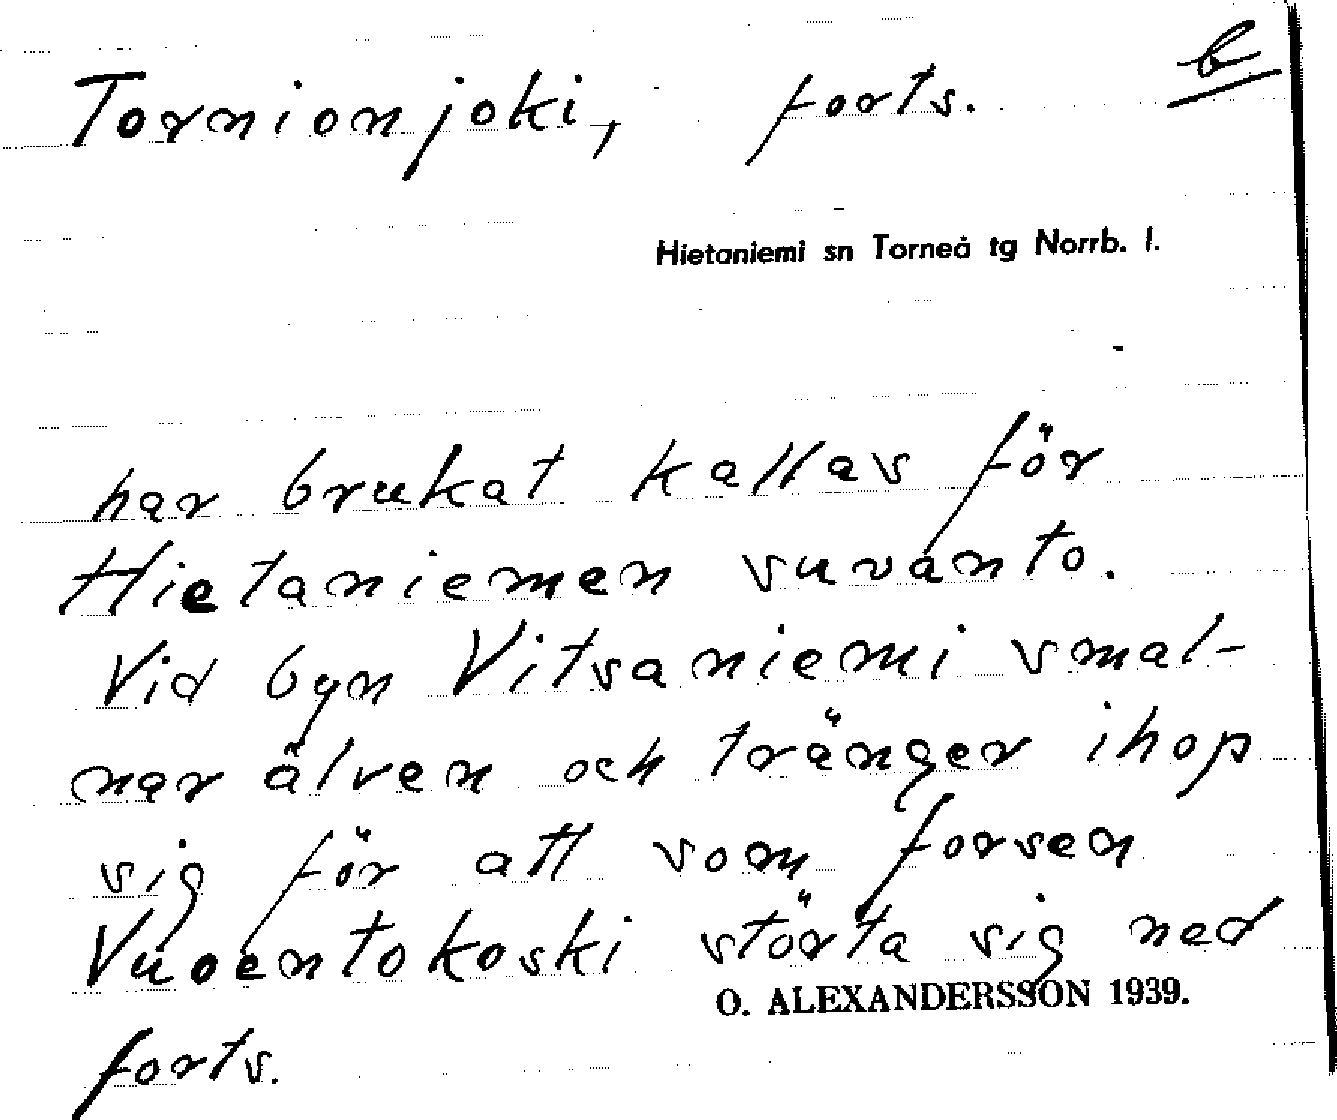 b
Tornionjoki, forts.
Hietaniemi sn Torneå tg Norrb. l.
har brukat kallas för
Hietaniemen suvanto.
Vid byn Vitsaniemi smal-
nar älven och tränger ihop
sig för att som forsen
Vuoentokoski störta sig ned
O. ALEXANDERSSON 1939.
forts.